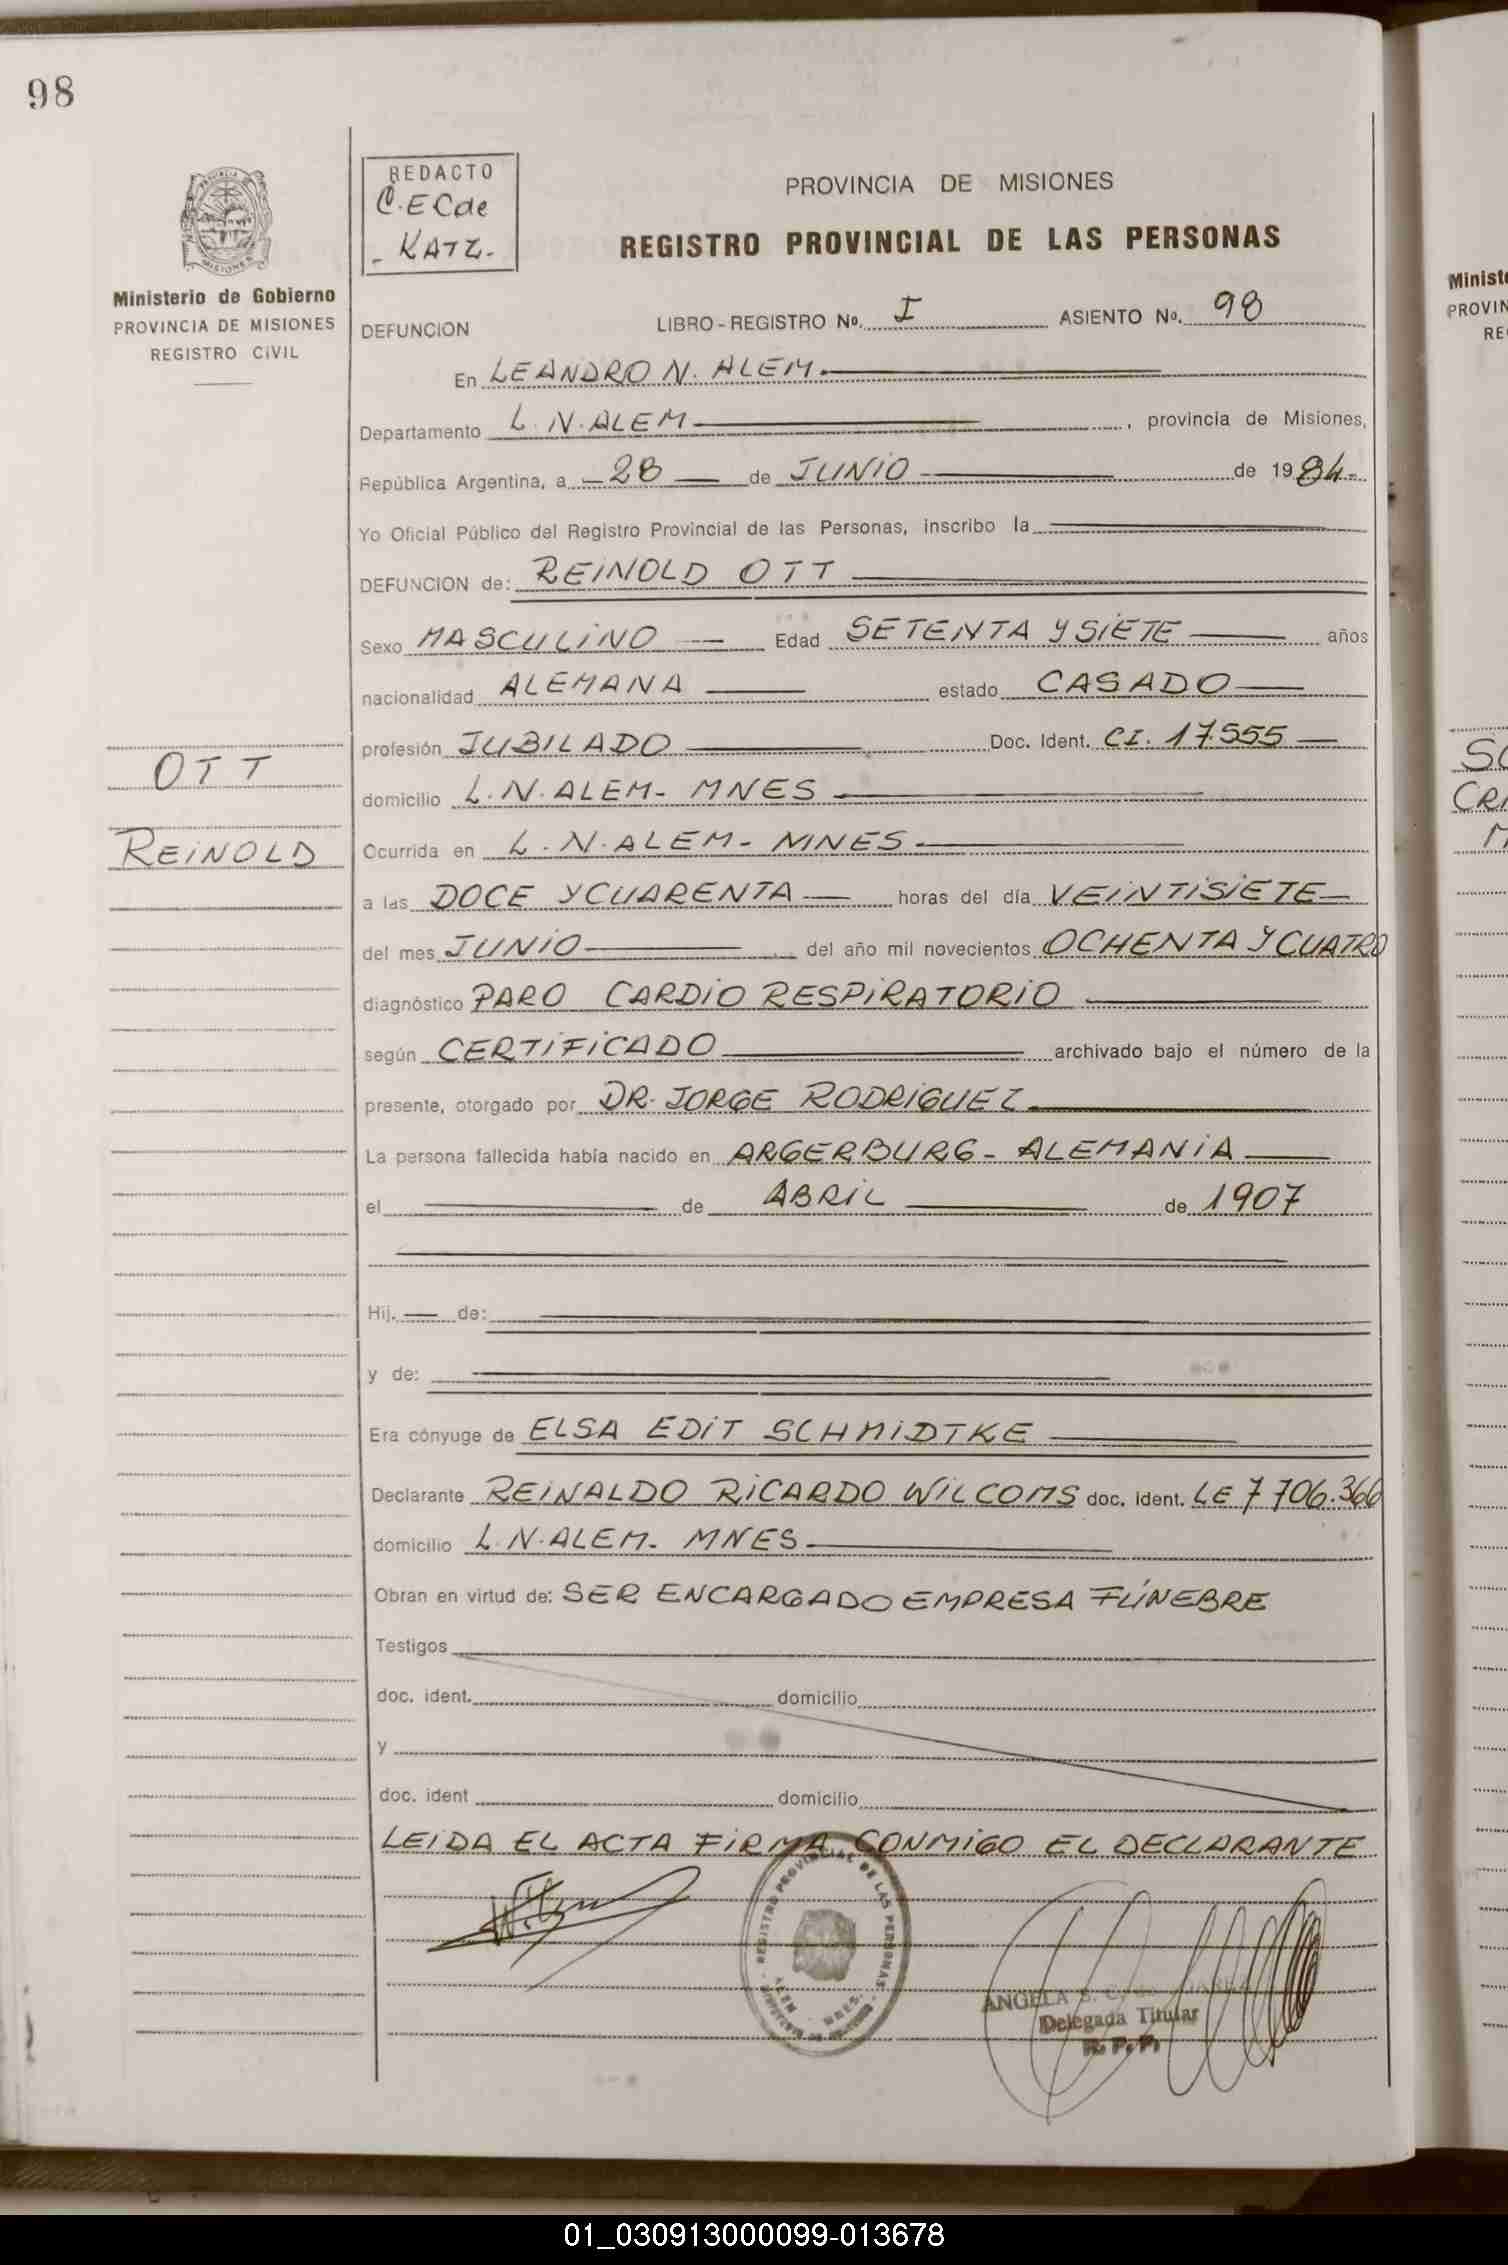 98
REDACTO
C.E Cde
- KATZ.-
PROVINCIA DE MISIONES
REGISTRO PROVINCIAL DE LAS PERSONAS
PROVINCIA
MISIONES
Ministerio de Gobierno
PROVINCIA DE MISIONES
REGISTRO CiVIL
DEFUNCION LIBRO-REGISTRO No. I ASIENTO No. 98
En LEANDRO N. ALEM.
Departamento L.N.ALEM , provincia de Misiones,
República Argentina, a 28 de JUNIO de 1984.-
Yo Oficial Público del Registro Provincial de las Personas, inscribo la
DEFUNCION de: REINOLD OTT
Sexo MASCULINO Edad SETENTA Y SIETE años
nacionalidad ALEMANA estado CASADO
profesión JUBILADO Doc. Ident. CI. 17.555
domicilio L.N.ALEM- MNES
Ocurrida en L.N.ALEM- MNES
a las DOCE Y CUARENTA horas del día VEINTISIETE
del mes JUNIO del año mil novecientos OCHENTA Y CUATRO
diagnóstico PARO CARDIO RESPIRATORIO
según CERTIFICADO archivado bajo el número de la
presente, otorgado por DR. JORGE RODRIGUEZ
La persona fallecida había nacido en ARGERBURG- ALEMANIA
el de ABRIL de 1907
Hij. de:
y de:
Era cónyuge de ELSA EDIT SCHMIDTKE
Declarante REINALDO RICARDO WILCOMS doc. ident. LE 7 706.366
domicilio L.N.ALEM- MNES
Obran en virtud de: SER ENCARGADO EMPRESA FÚNEBRE
Testigos
doc. ident. domicilio
y
doc. ident domicilio
LEIDA EL ACTA FIRMA CONMIGO EL DECLARANTE
OTT
REINOLD
REGISTRO PROVINCIAL DE LAS PERSONAS
ANGELA
Delegada Titular
R. P. P.
Ministe
PROVIN
RE
SC
CRI
M
01_030913000099-013678